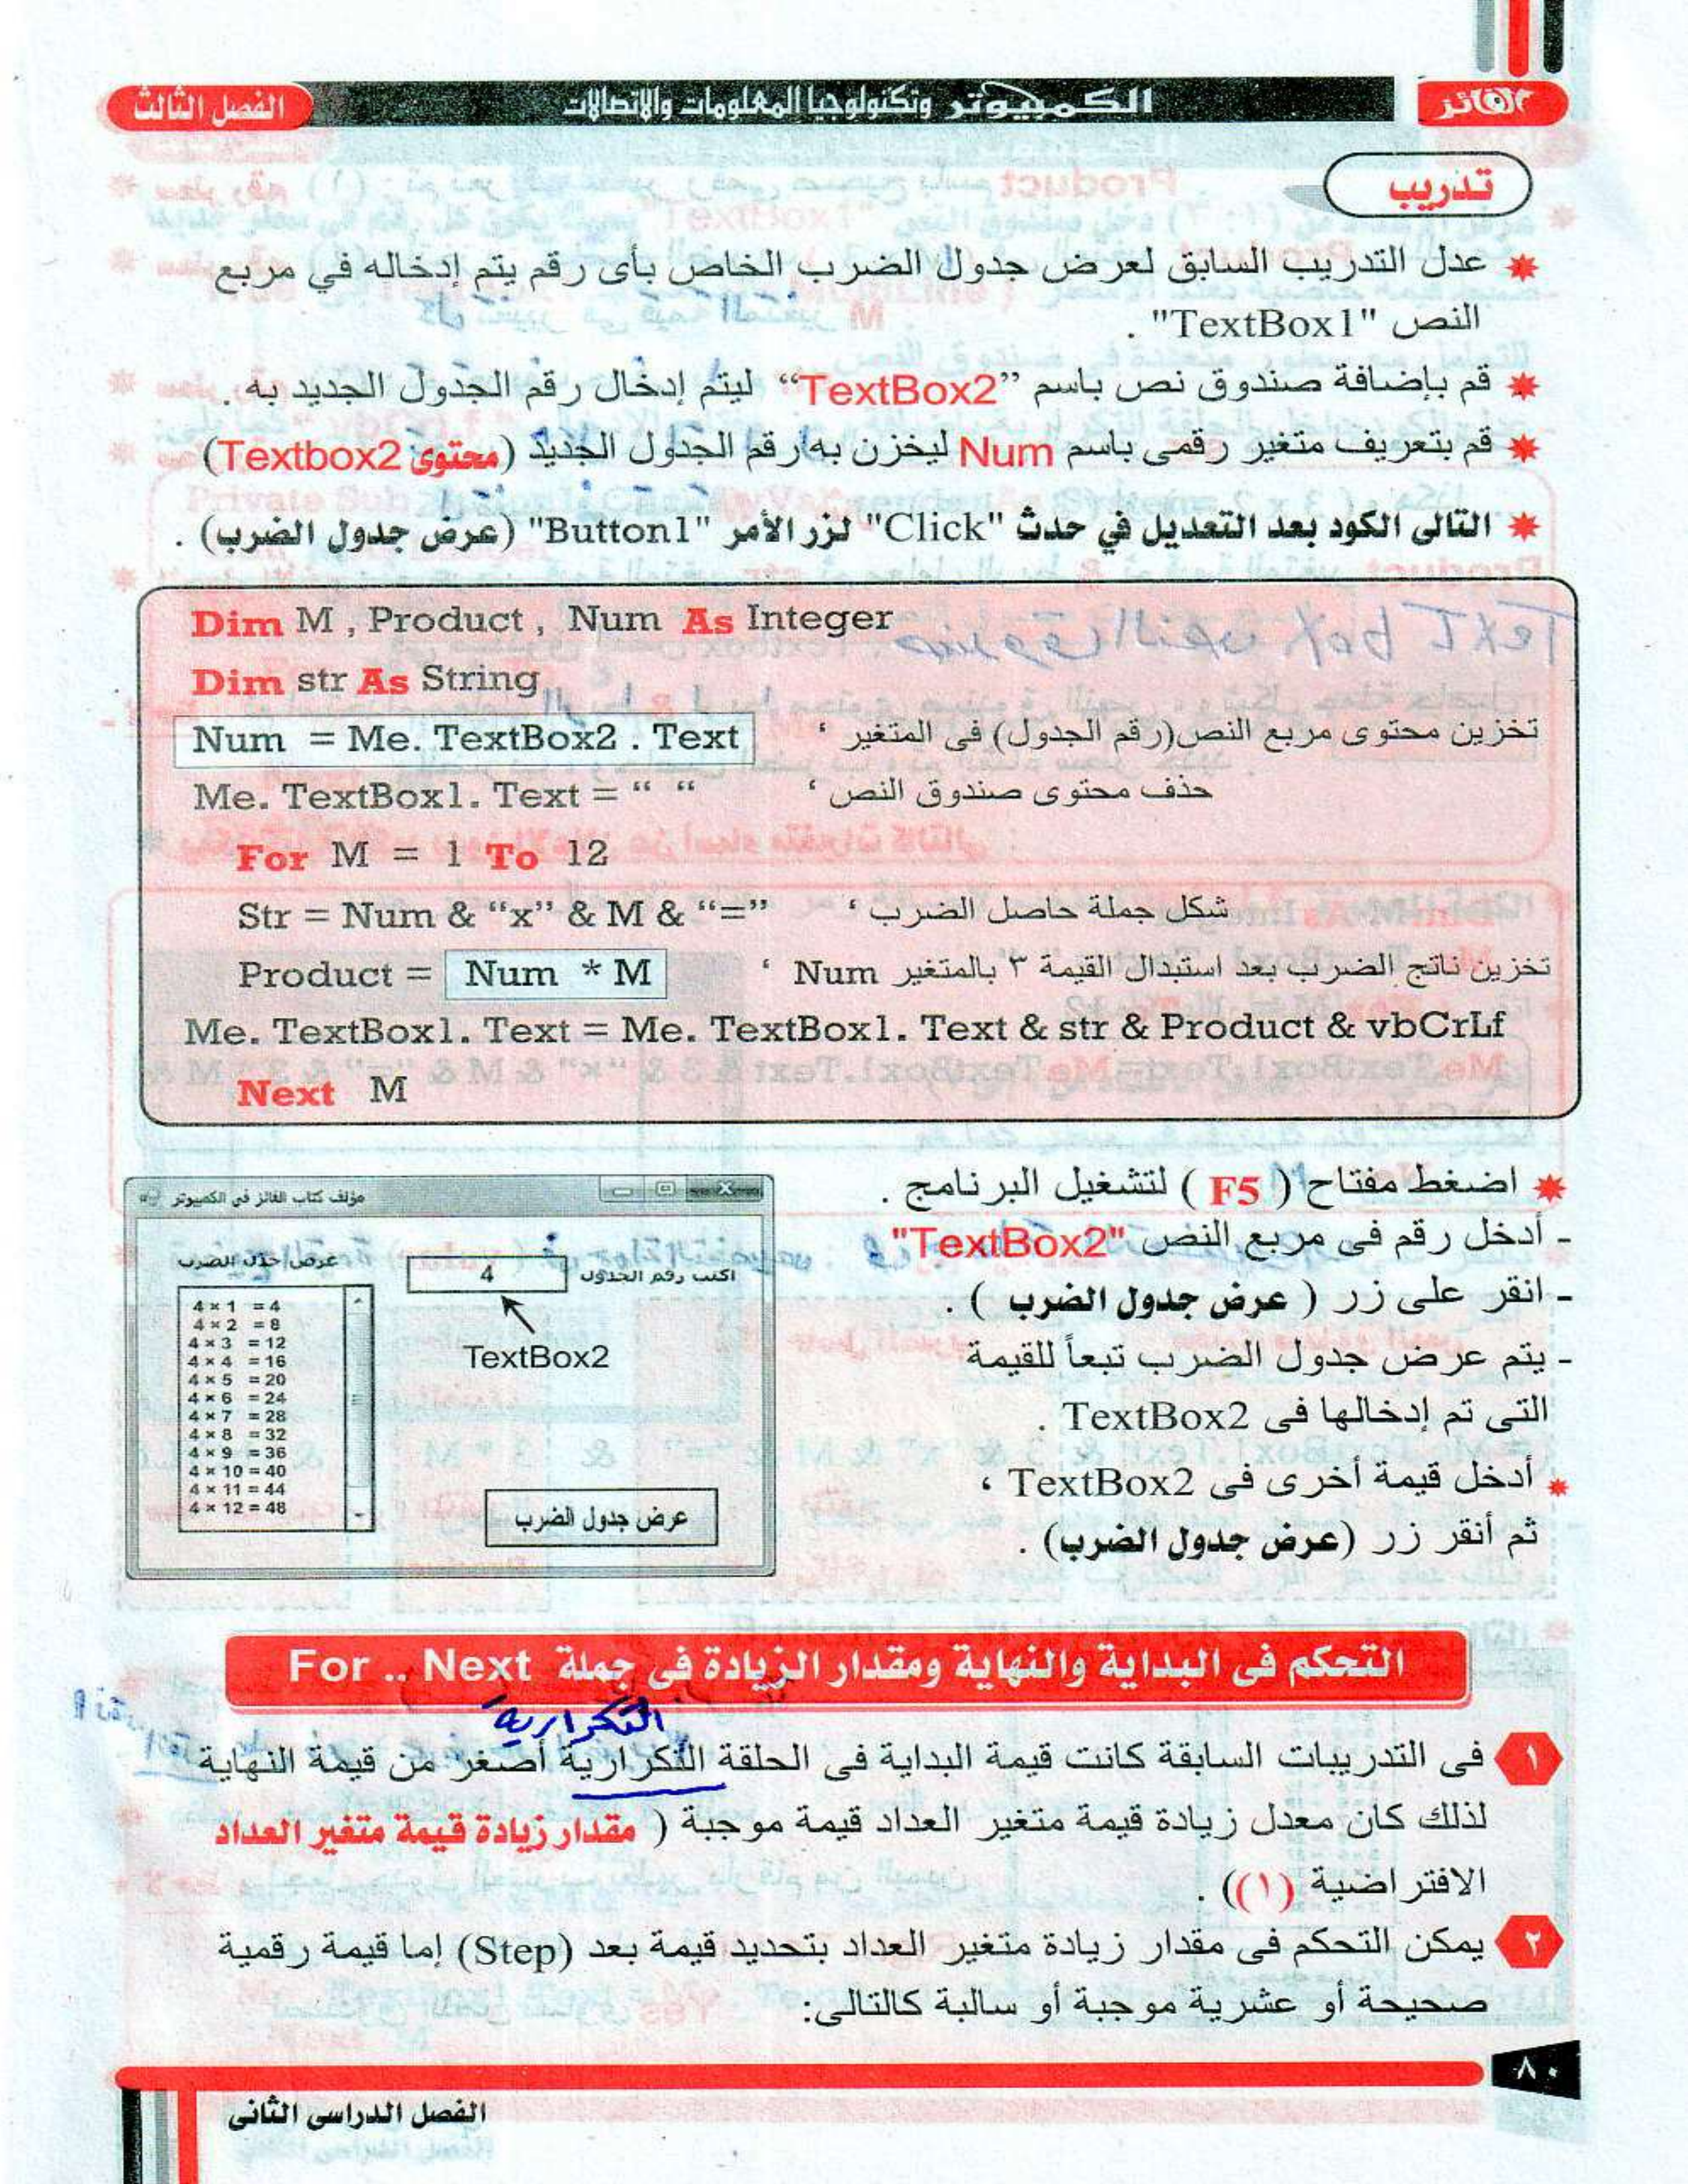 الفائز
الكمبيوتر وتكنولوجيا المعلومات والاتصالات
الفصل الثالث
تدريب
عدل التدريب السابق لعرض جدول الضرب الخاص بأى رقم يتم إدخاله في مربع
النص "TextBox1" .
قم بإضافة صندوق نص باسم “TextBox2” ليتم إدخال رقم الجدول الجديد به .
قم بتعريف متغير رقمى باسم Num ليخزن به رقم الجدول الجديد (محتوى Textbox2)
التالى الكود بعد التعديل في حدث "Click" لزر الأمر "Button1" (عرض جدول الضرب) .
Dim M , Product , Num As Integer
Dim str As String
Num = Me. TextBox2 . Text تخزين محتوى مربع النص(رقم الجدول) فى المتغير ‘
Me. TextBox1. Text = “ “ حذف محتوى صندوق النص ‘
For M = 1 To 12
Str = Num & “x” & M & “=” شكل جملة حاصل الضرب ‘
Product = Num * M تخزين ناتج الضرب بعد استبدال القيمة ٣ بالمتغير Num ‘
Me. TextBox1. Text = Me. TextBox1. Text & str & Product & vbCrLf
Next M
اضغط مفتاح ( F5 ) لتشغيل البرنامج .
- أدخل رقم فى مربع النص "TextBox2"
- انقر على زر ( عرض جدول الضرب ) .
- يتم عرض جدول الضرب تبعاً للقيمة
التى تم إدخالها فى TextBox2 .
أدخل قيمة أخرى فى TextBox2 ،
ثم أنقر زر (عرض جدول الضرب) .
مؤلف كتاب الفائز فى الكمبيوتر
عرض جدول الضرب
اكتب رقم الجدول
4
TextBox2
4 × 1 = 4
4 × 2 = 8
4 × 3 = 12
4 × 4 = 16
4 × 5 = 20
4 × 6 = 24
4 × 7 = 28
4 × 8 = 32
4 × 9 = 36
4 × 10 = 40
4 × 11 = 44
4 × 12 = 48
عرض جدول الضرب
التحكم فى البداية والنهاية ومقدار الزيادة فى جملة For .. Next
التكرارية
١ فى التدريبات السابقة كانت قيمة البداية فى الحلقة التكرارية أصغر من قيمة النهاية
لذلك كان معدل زيادة قيمة متغير العداد قيمة موجبة ( مقدار زيادة قيمة متغير العداد
الافتراضية (١)) .
٢ يمكن التحكم فى مقدار زيادة متغير العداد بتحديد قيمة بعد (Step) إما قيمة رقمية
صحيحة أو عشرية موجبة أو سالبة كالتالى:
٨٠
الفصل الدراسى الثانى